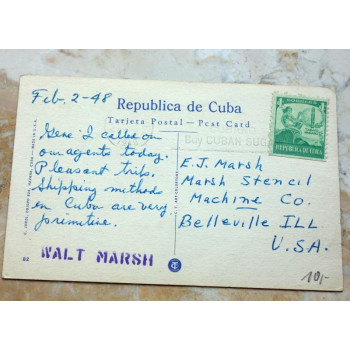 Feb. 2-48
Republica de Cuba
Tarjeta Postal — Post Card
Buy CUBAN SUG
REPUBLICA DE CUBA
Gene: I called on
our agents today.
Pleasant trip.
Shipping method
en Cuba are very
primitive.
E.J. Marsh
Marsh Stencil
Machine Co.
Belleville ILL
U.S.A.
62
WALT MARSH
10,-